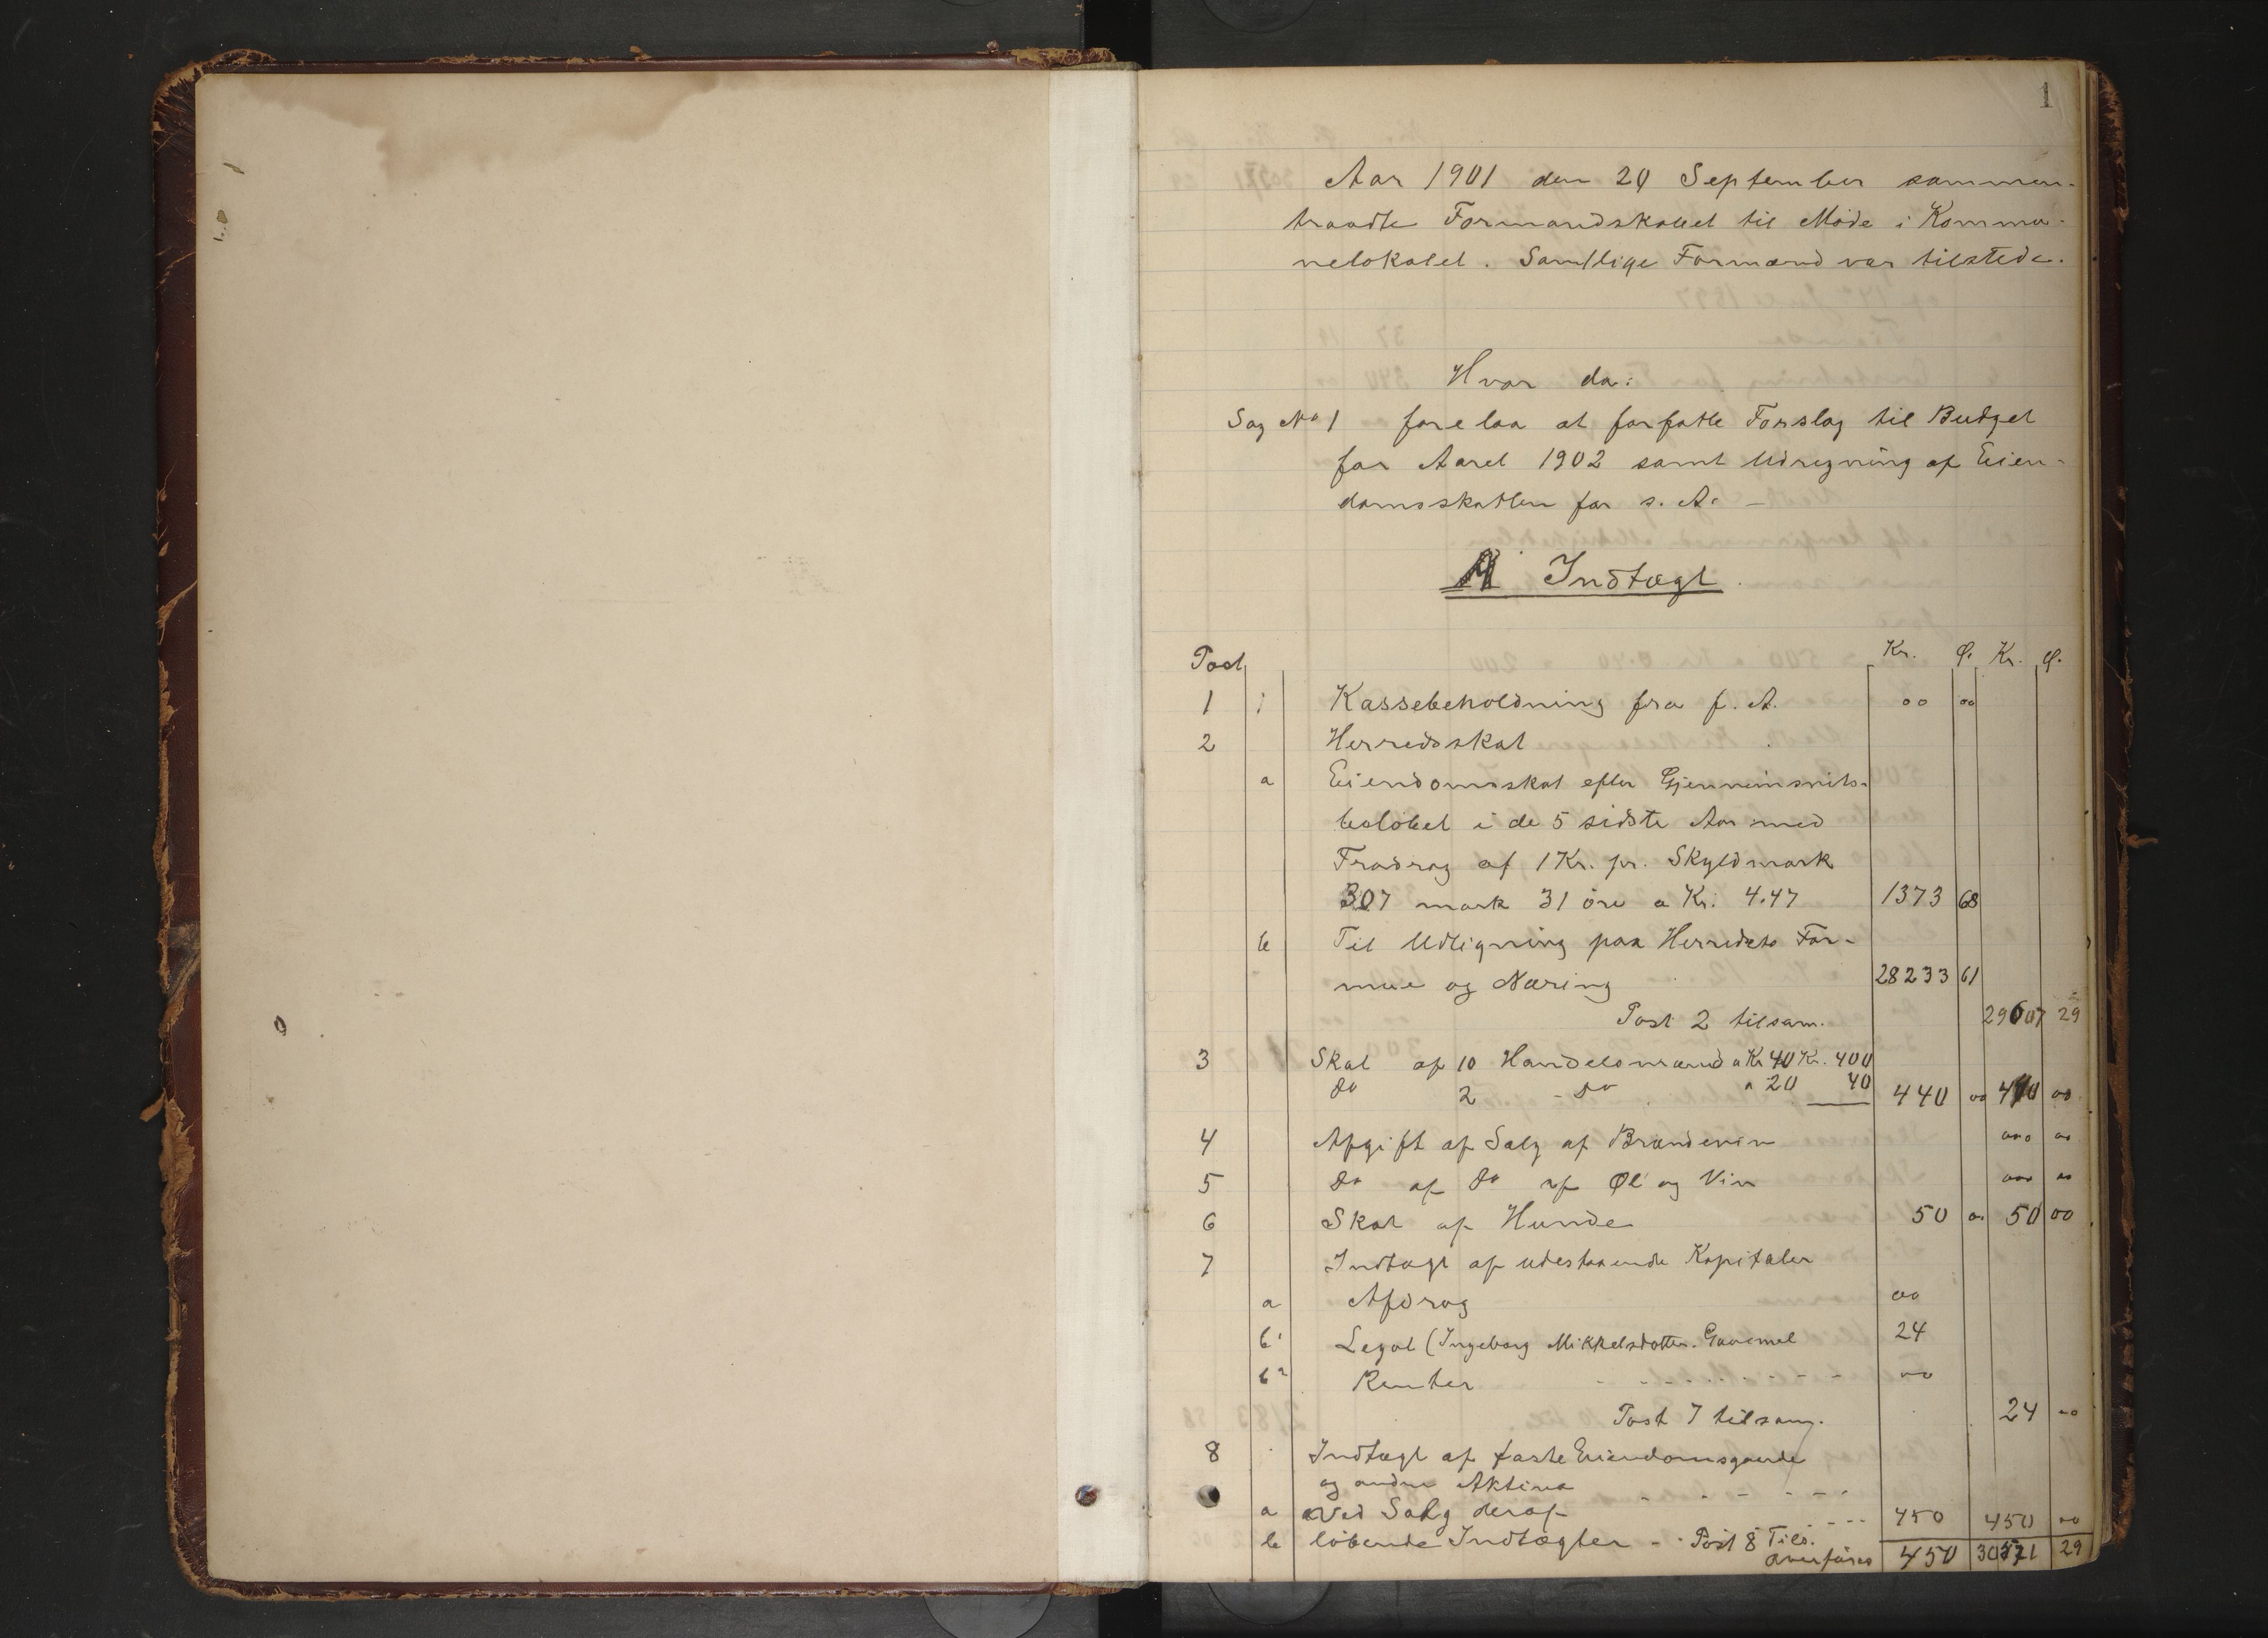 1
Aar 1901 den 20 September sammen-
traadte Formandskabet til Møde i Kommu-
nelokalet. Samtlige Formænd var tilstede.
Hvor da:
Sag No 1 forelaa at forfatte Forslag til Budget
for Aaret 1902 samt Udregning af Eien-
domsskatten for s. A. -
A Indtægt.
Post Kr. Ø. Kr. Ø.
1 Kassebeholdning fra f. A. 00 00
2 Herredsskat
a Eiendomsskat efter Gjennemsnits-
beløbet i de 5 sidste Aar med
Fradrag af 1 Kr. pr. Skyldmark
307 mark 31 øre a Kr. 4.47 1373 68
b Til Udligning paa Herredets For-
mue og Næring 28233 61
Post 2 tilsam. 29607 29
3 Skat af 10 Handelsmænd a Kr 40 Kr. 400
do 2 - do a 20 40 440 00 440 00
4 Afgift af Salg af Brændevin 000 00
5 do af do af Øl og Vin 000 00
6 Skat af Hunde 50 00 50 00
7 Indtægt af udestaaende Kapitaler
a Afdrag 000
b1 Legat (Ingeborg Mikkelsdotter 24
b2 Renter - - - - - - - - - 00
Post 7 tilsam. 24 00
8 Indtægt af faste Eiendomsgaarde
og andre Aktiva - - - - - -
a Ved Salg deraf - - - 450 450 00
b løbende Indtægter - - Post 8 Tils.
Overføres 450 30571 29